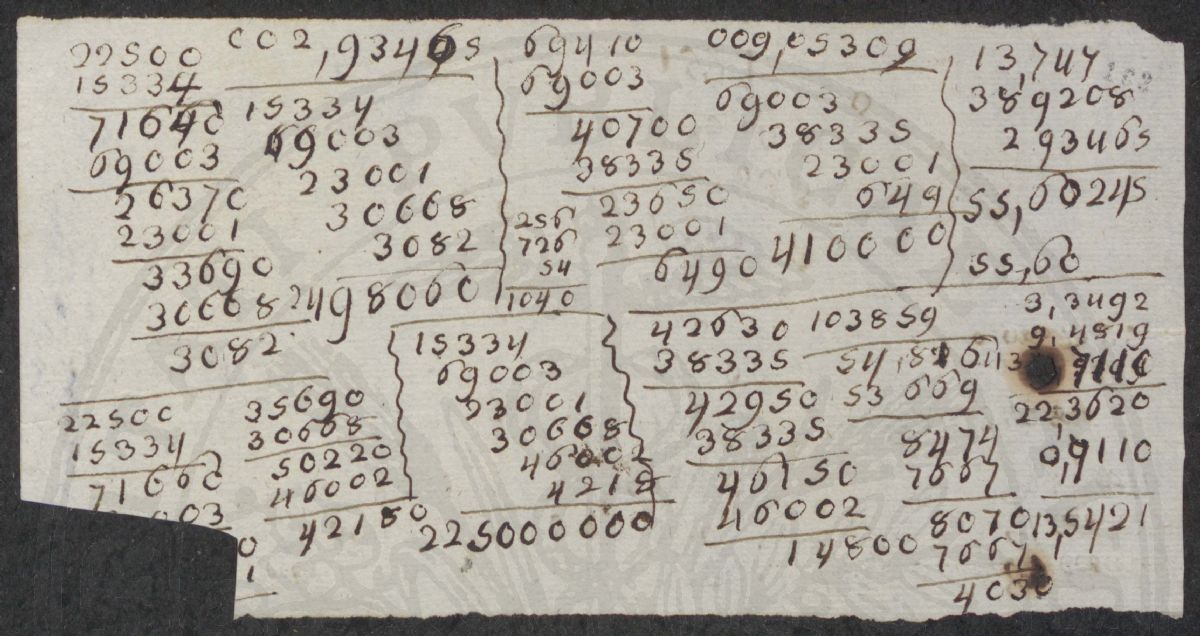 22500
15334
71640
69003
26370
23001
33690
30668
3082
002,93465
15334
69003
23001
30668
3082
2498060
69410
69003
40700
38335
23650
23001
6490
256
726
54
1040
009,05309
69003
38335
23001
649
410000
13,747
389208
293465
55,60245
55,60
22500
15334
71660
003
0
1
35690
30668
50220
46002
42180
15334
69003
23001
30668
46002
4218
225000000
42630
38335
42950
38335
46150
46002
14800
103859
53 669
8474
7667
8070
7667
4030
3,3492
9,4819
22,3620
0,9110
13,5421